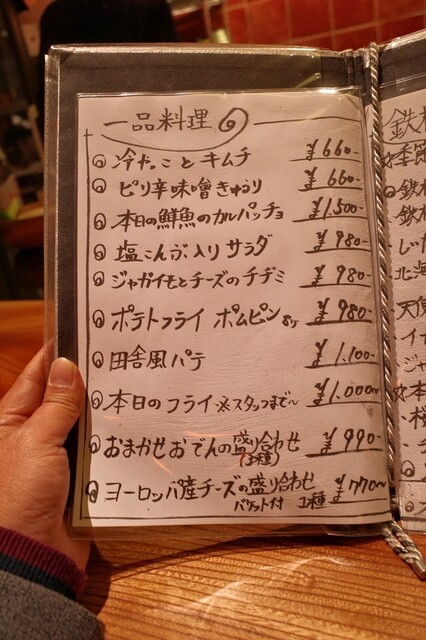 一品料理
冷やっことキムチ ¥660-
ピリ辛味噌きゅうり ¥660-
本日の鮮魚のカルパッチョ ¥1,500-
塩こんぶ入りサラダ ¥980-
ジャガイモとチーズのチヂミ ¥980-
ポテトフライ ポムピン ¥980-
田舎風パテ ¥1,100-
本日のフライ ※スタッフまで〜 ¥1,000〜
おまかせおでんの盛り合わせ ¥990-
(3種)
ヨーロッパ産チーズの盛り合わせ
バケット付 1種 ¥770〜
鉄板
季節
鉄
鉄板
北海
天使